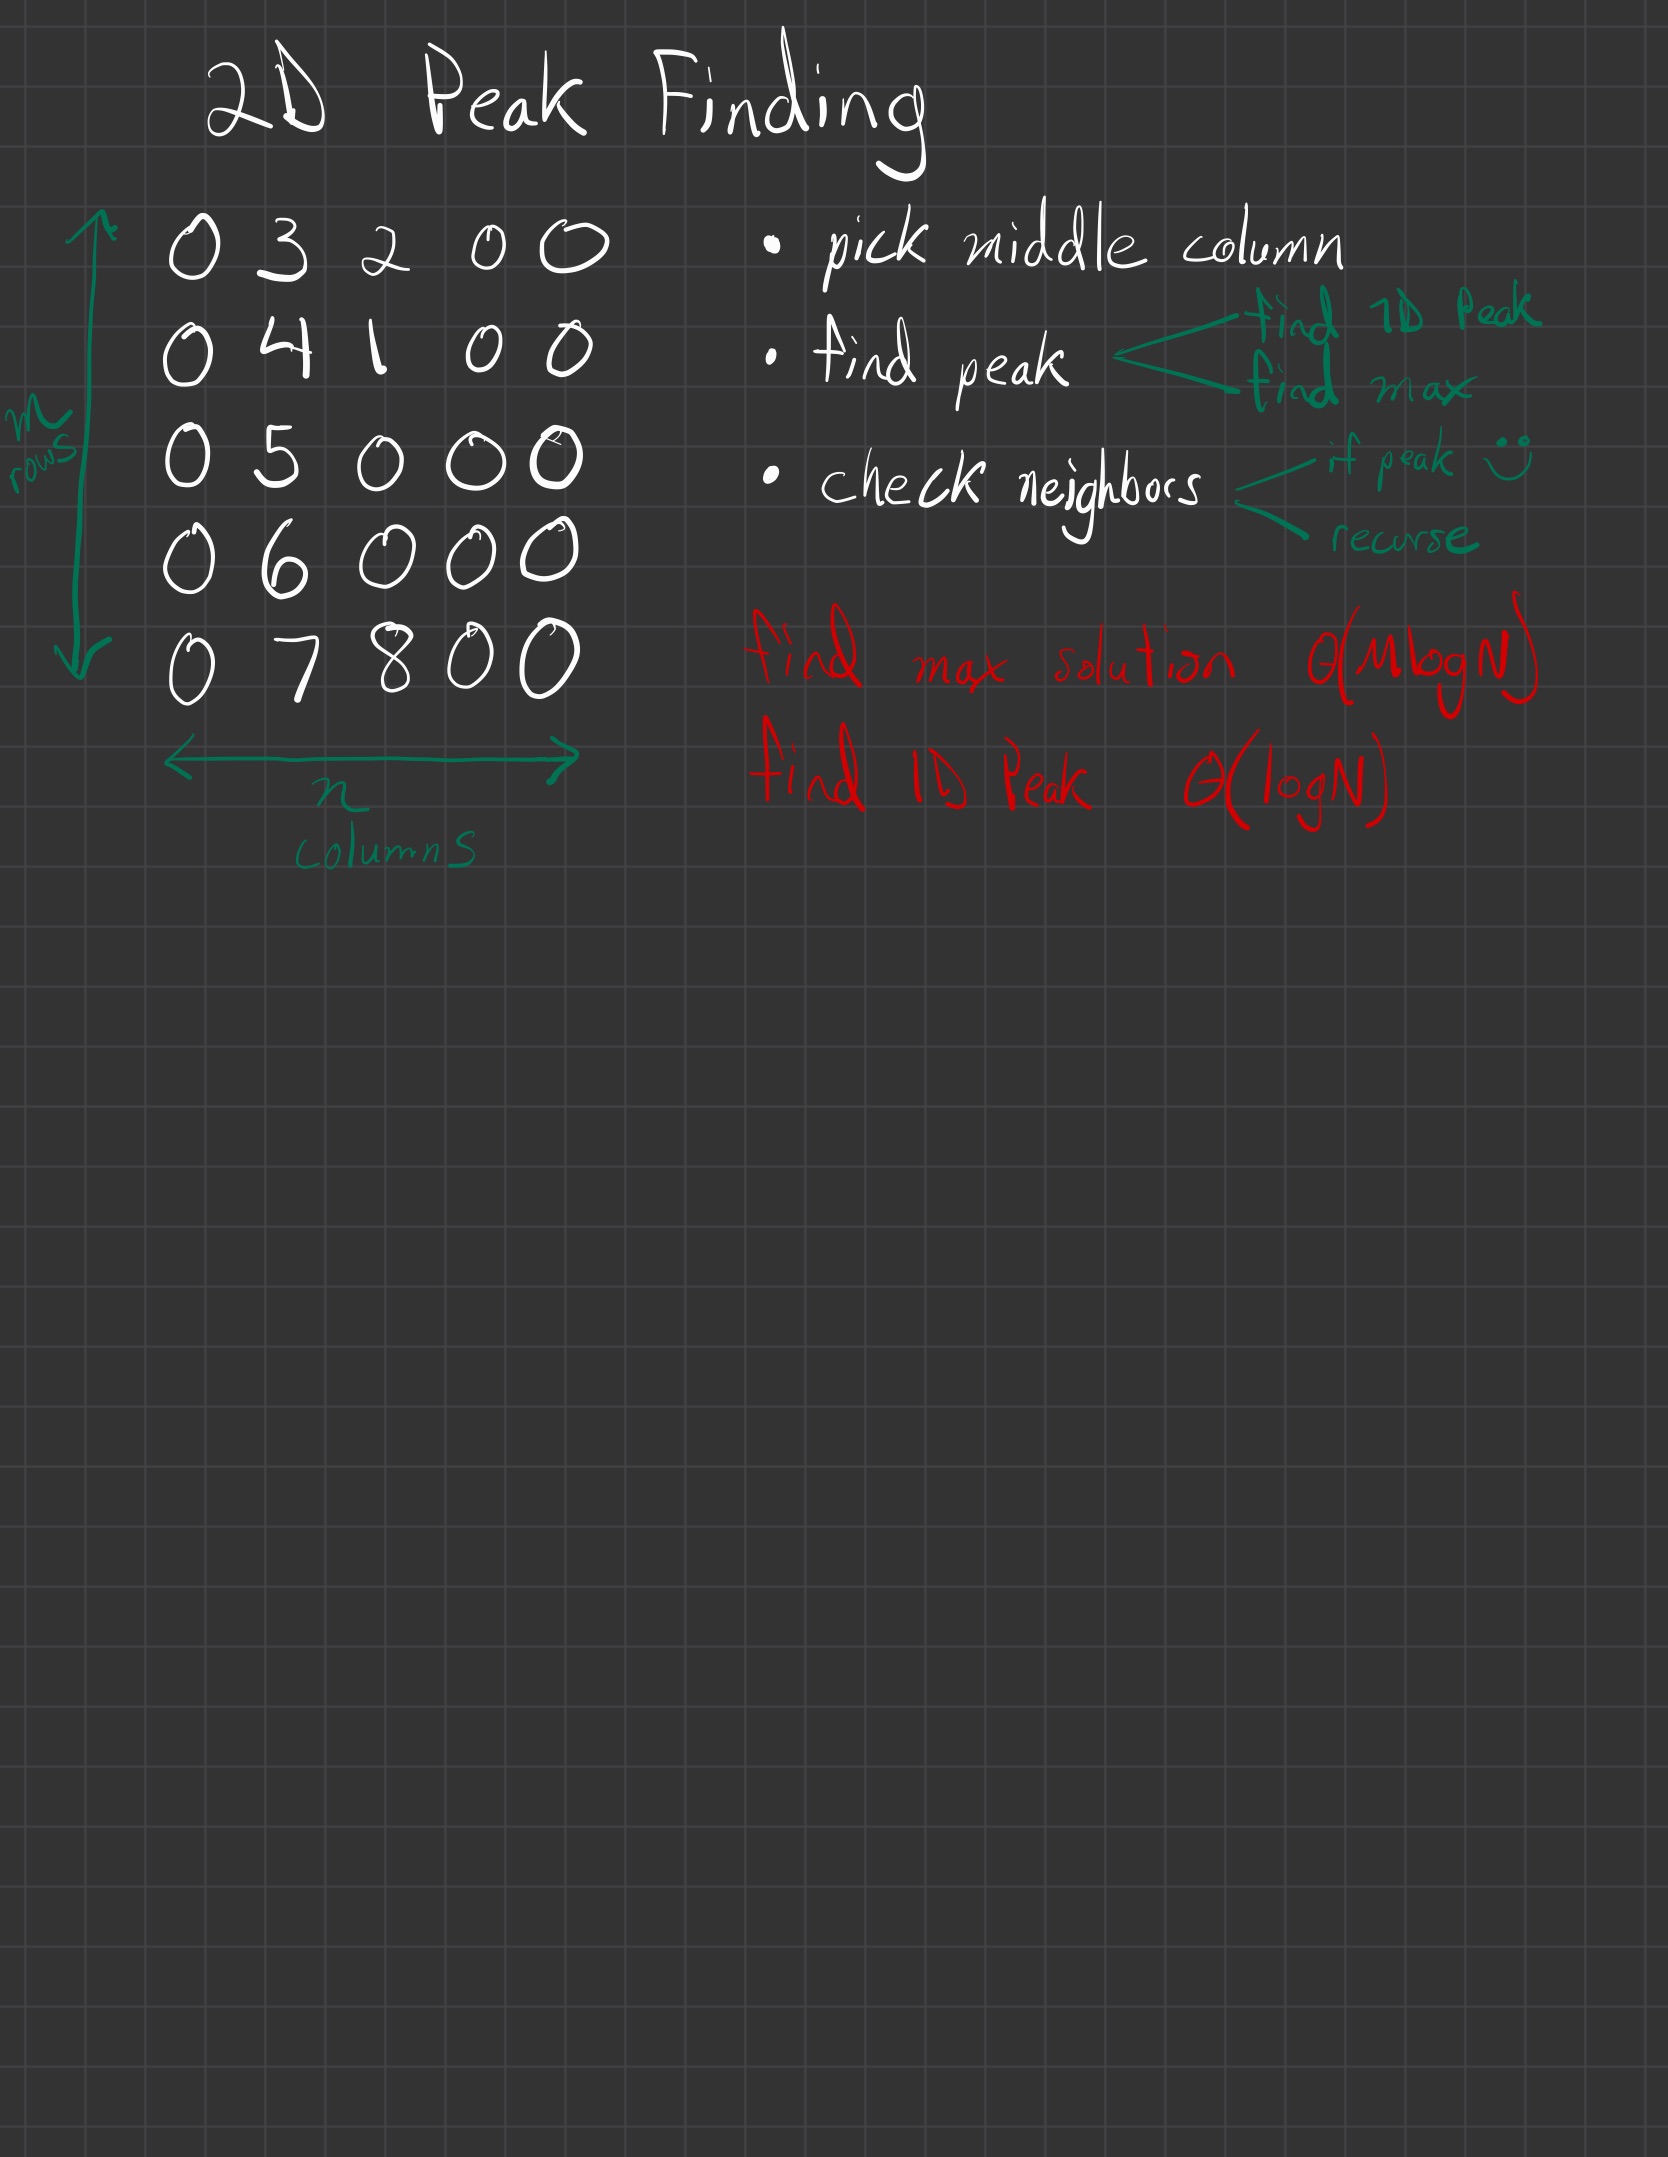 2D Peak Finding
0 3 2 0 0
0 4 1 0 0
0 5 0 0 0
0 6 0 0 0
0 7 8 0 0
rows
n
columns
• pick middle column
• find peak
find 1D Peak
find max
• check neighbors
if peak
recurse
find max solution Θ(MlogN)
find 1D Peak Θ(logN)